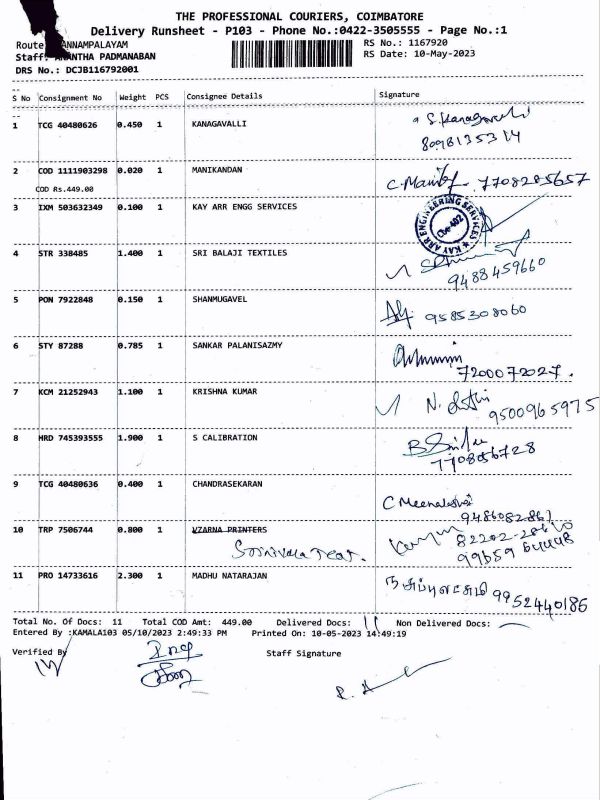 THE PROFESSIONAL COURIERS, COIMBATORE
Delivery Runsheet - P103 - Phone No.:0422-3505555 - Page No.:1
Route ANNAMPALAYAM RS No.: 1167920
Staff: ANANTHA PADMANABAN RS Date: 10-May-2023
DRS No.: DCJB116792001
S No Consignment No Weight PCS Consignee Details Signature
1 TCG 40480626 0.450 1 KANAGAVALLI S. Kanagavalli
8098135314
2 COD 1111903298 0.020 1 MANIKANDAN C. Mani 7708285657
COD Rs.449.00
3 IXM 503632349 0.100 1 KAY ARR ENGG SERVICES
KAY ARR ENGINEERING SERVICES
4 STR 338485 1.400 1 SRI BALAJI TEXTILES
9488459660
5 PON 7922848 0.150 1 SHANMUGAVEL 9585308060
6 STY 87288 0.785 1 SANKAR PALANISAZMY
7200072027.
7 KCM 21252943 1.100 1 KRISHNA KUMAR N.
9500965975
8 HRD 745393555 1.900 1 S CALIBRATION B
7708056728
9 TCG 40480636 0.400 1 CHANDRASEKARAN C Meenakshi
10 TRP 7506744 0.800 1 VZARNA PRINTERS
11 PRO 14733616 2.300 1 MADHU NATARAJAN 9952440186
Total No. Of Docs: 11 Total COD Amt: 449.00 Delivered Docs: 11 Non Delivered Docs: —
Entered By :KAMALA103 05/10/2023 2:49:33 PM Printed On: 10-05-2023 14:49:19
Verified By Staff Signature